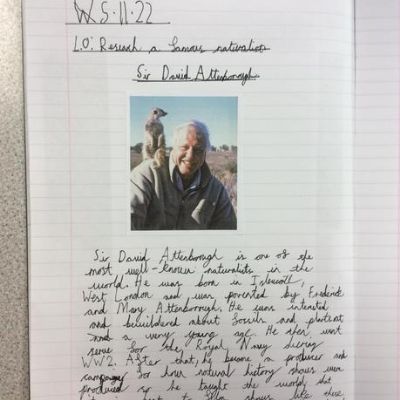 W 5.11.22
L.O: Reseach a famous naturalist
Sir David Attenborough
Sir David Attenborough is one of the
most well-known naturalists in the
world. He was born in Isleworth,
West London and was parented by Frederick
and Mary Attenborough. He was interested
and bewildered about fossils and
and a very young age. He then went
serve for the Royal Navy during
WW2. After that, he became a producer and
for how natural history shows were
produced so he taught the world that
to film shows like these